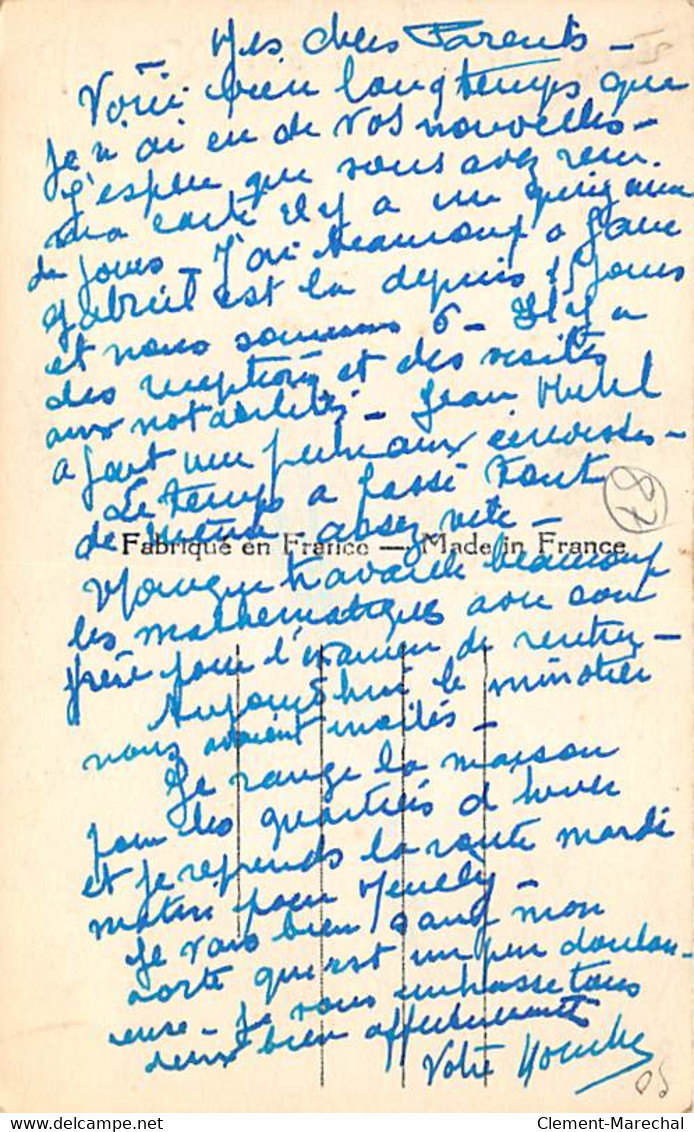 Mes chers Parents -
Voici bien longtemps que
je n'ai eu de vos nouvelles -
J'espère que vous avez reçu
ma carte il y a une quinzaine
de jours - J'ai beaucoup à faire
Gabriel est là depuis 15 jours
et nous sommes 6 - Il y a
des réceptions et des visites
aux notabilités - Jean Michel
a fait une
Le temps a passé tout
de même assez vite -
87
Fabriqué en France — Made in France
travaille beaucoup
les mathématiques avec son
frère pour l'examen de rentrée -
Aujourd'hui le minotier
nous avaient invités -
Je range la maison
pour les quartiers d'hiver
et je reprends la route mardi
matin pour
Je vais bien sauf mon
aorte qui est un peu doulou-
reuse - Je vous embrasse tous
deux bien affectueusement
Votre
Clement-Marechal